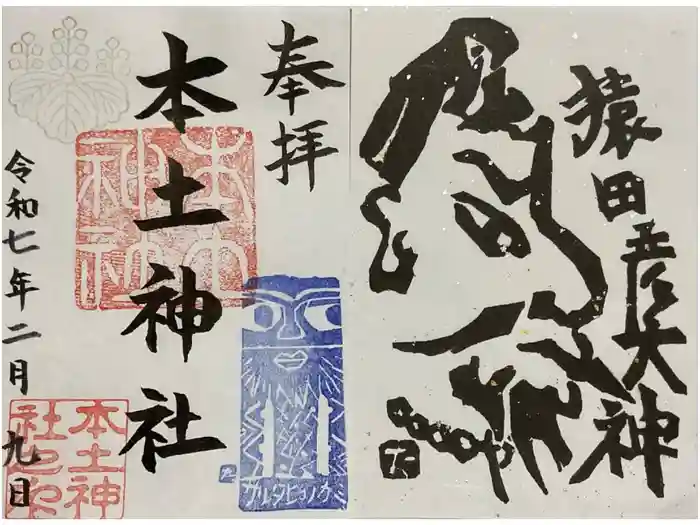 奉拝
本土神社
令和七年二月九日
本土神社
本土神
社之印
サルタヒコノカミ
猿田彦大神